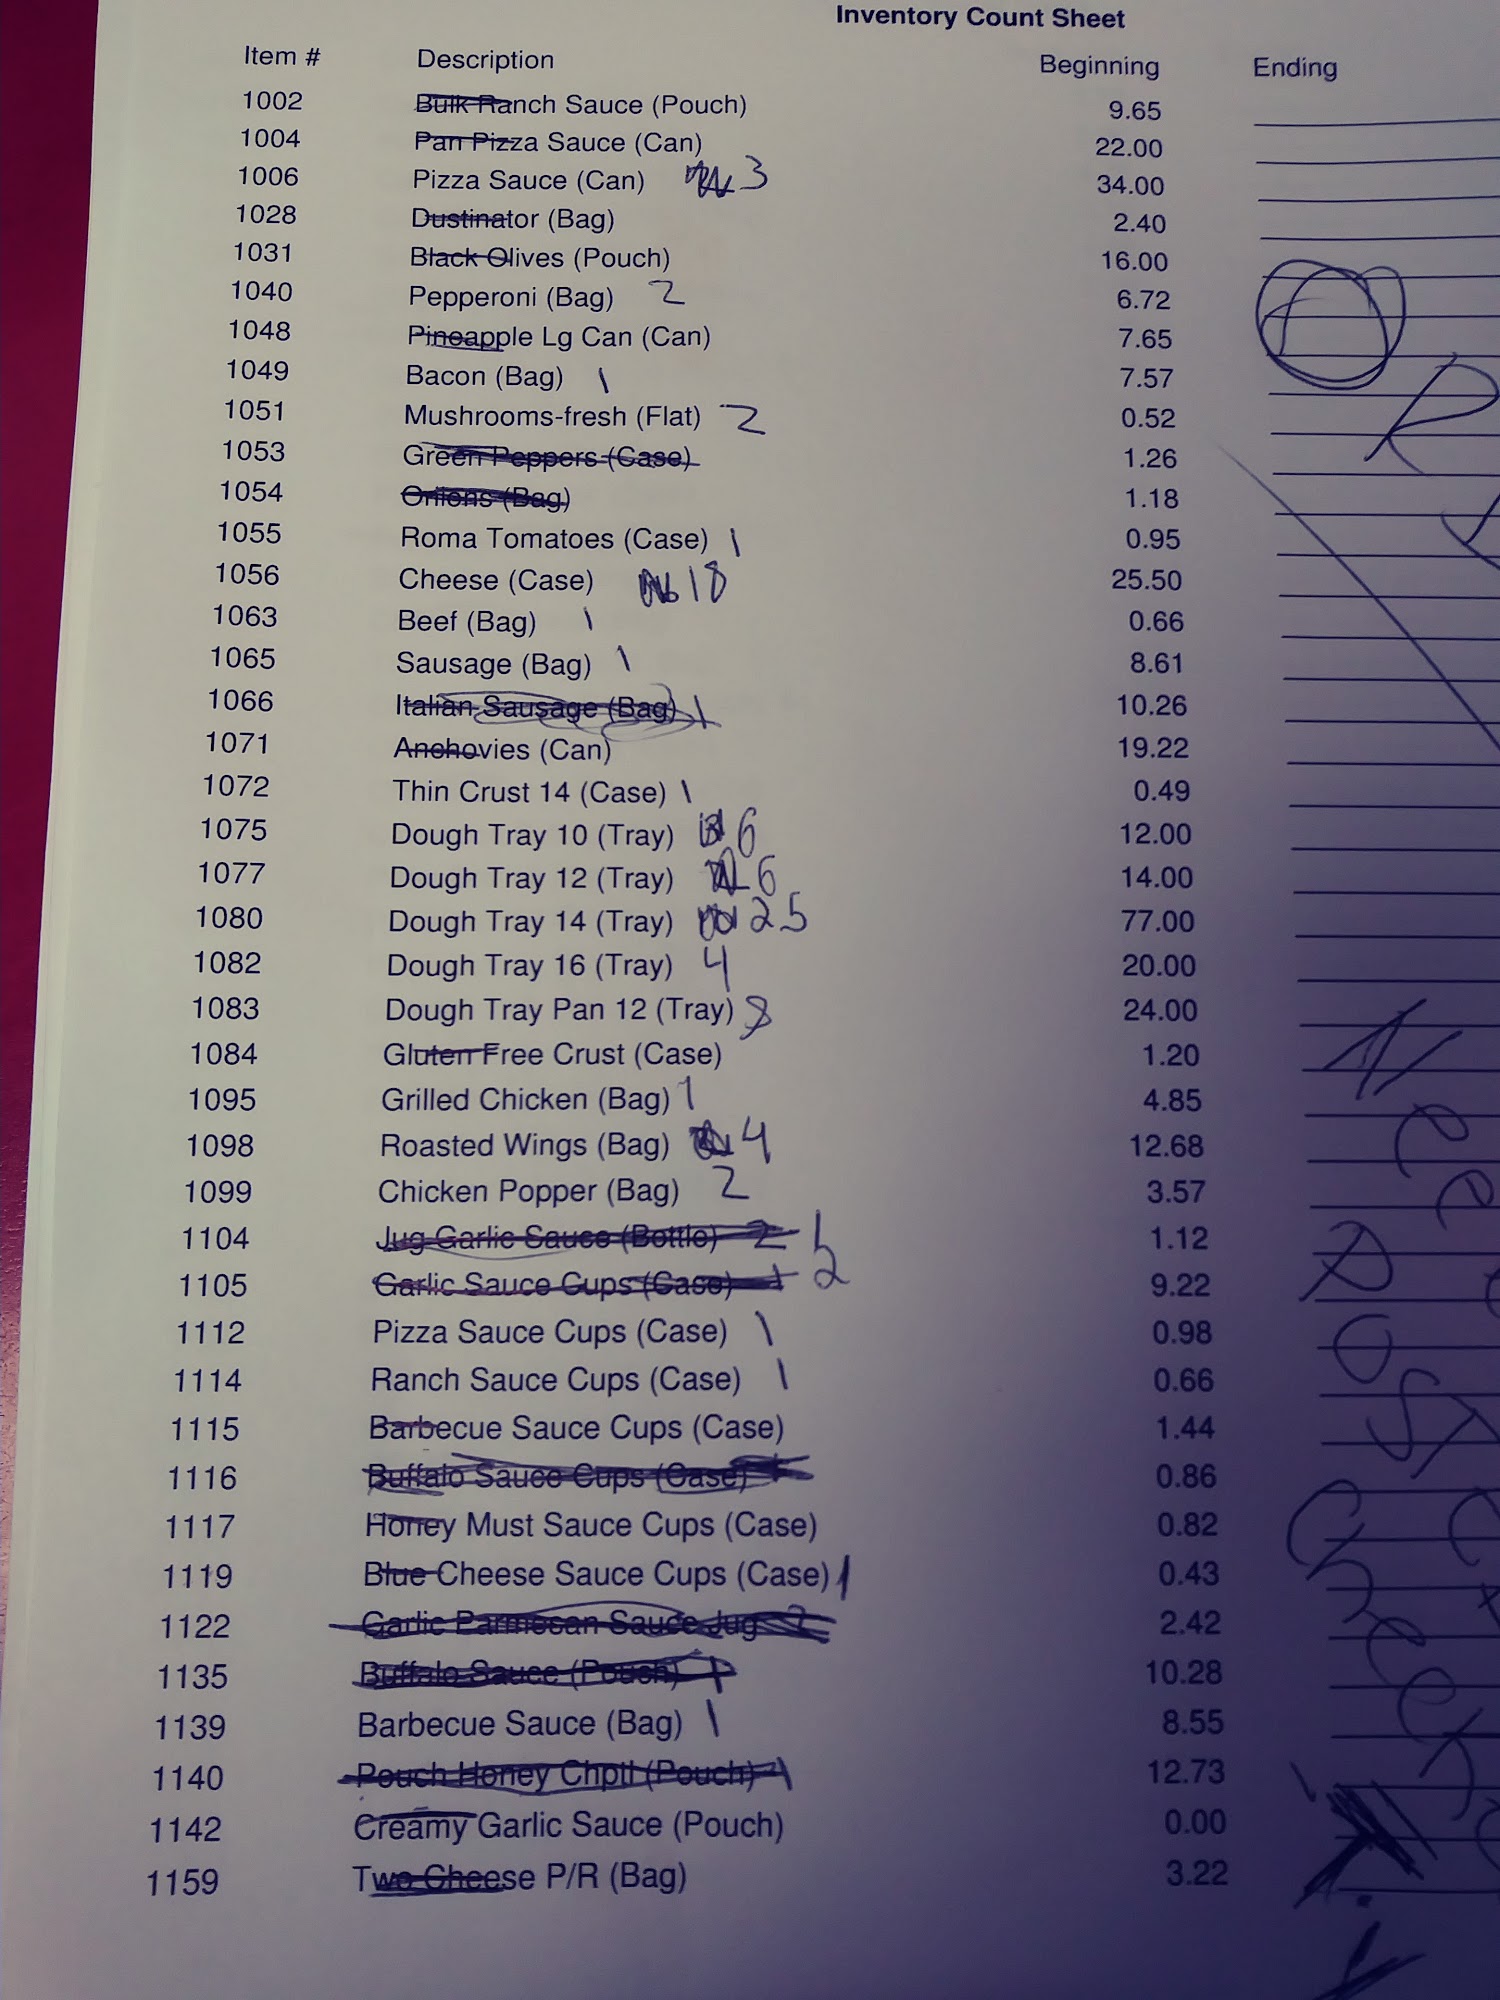 Inventory Count Sheet
Item # Description Beginning Ending
1002 Bulk Ranch Sauce (Pouch) 9.65
1004 Pan Pizza Sauce (Can) 22.00
1006 Pizza Sauce (Can) 3 34.00
1028 Dustinator (Bag) 2.40
1031 Black Olives (Pouch) 16.00
1040 Pepperoni (Bag) 2 6.72
1048 Pineapple Lg Can (Can) 7.65
1049 Bacon (Bag) 1 7.57
1051 Mushrooms-fresh (Flat) 2 0.52
1053 Green Peppers (Case) 1.26
1054 Onions (Bag) 1.18
1055 Roma Tomatoes (Case) 1 0.95
1056 Cheese (Case) 18 25.50
1063 Beef (Bag) 1 0.66
1065 Sausage (Bag) 1 8.61
1066 Italian Sausage (Bag) 1 10.26
1071 Anchovies (Can) 19.22
1072 Thin Crust 14 (Case) 1 0.49
1075 Dough Tray 10 (Tray) 6 12.00
1077 Dough Tray 12 (Tray) 6 14.00
1080 Dough Tray 14 (Tray) 25 77.00
1082 Dough Tray 16 (Tray) 4 20.00
1083 Dough Tray Pan 12 (Tray) 8 24.00
1084 Gluten Free Crust (Case) 1.20
1095 Grilled Chicken (Bag) 1 4.85
1098 Roasted Wings (Bag) 4 12.68
1099 Chicken Popper (Bag) 2 3.57
1104 Jug Garlic Sauce (Bottle) 2 1 1.12
1105 Garlic Sauce Cups (Case) 1 2 9.22
1112 Pizza Sauce Cups (Case) 1 0.98
1114 Ranch Sauce Cups (Case) 1 0.66
1115 Barbecue Sauce Cups (Case) 1.44
1116 Buffalo Sauce Cups (Case) 0.86
1117 Honey Must Sauce Cups (Case) 0.82
1119 Blue Cheese Sauce Cups (Case) 1 0.43
1122 Garlic Parmesan Sauce Jug 2.42
1135 Buffalo Sauce (Pouch) 1 10.28
1139 Barbecue Sauce (Bag) 1 8.55
1140 Pouch Honey Chptl (Pouch) 1 12.73
1142 Creamy Garlic Sauce (Pouch) 0.00
1159 Two Cheese P/R (Bag) 3.22